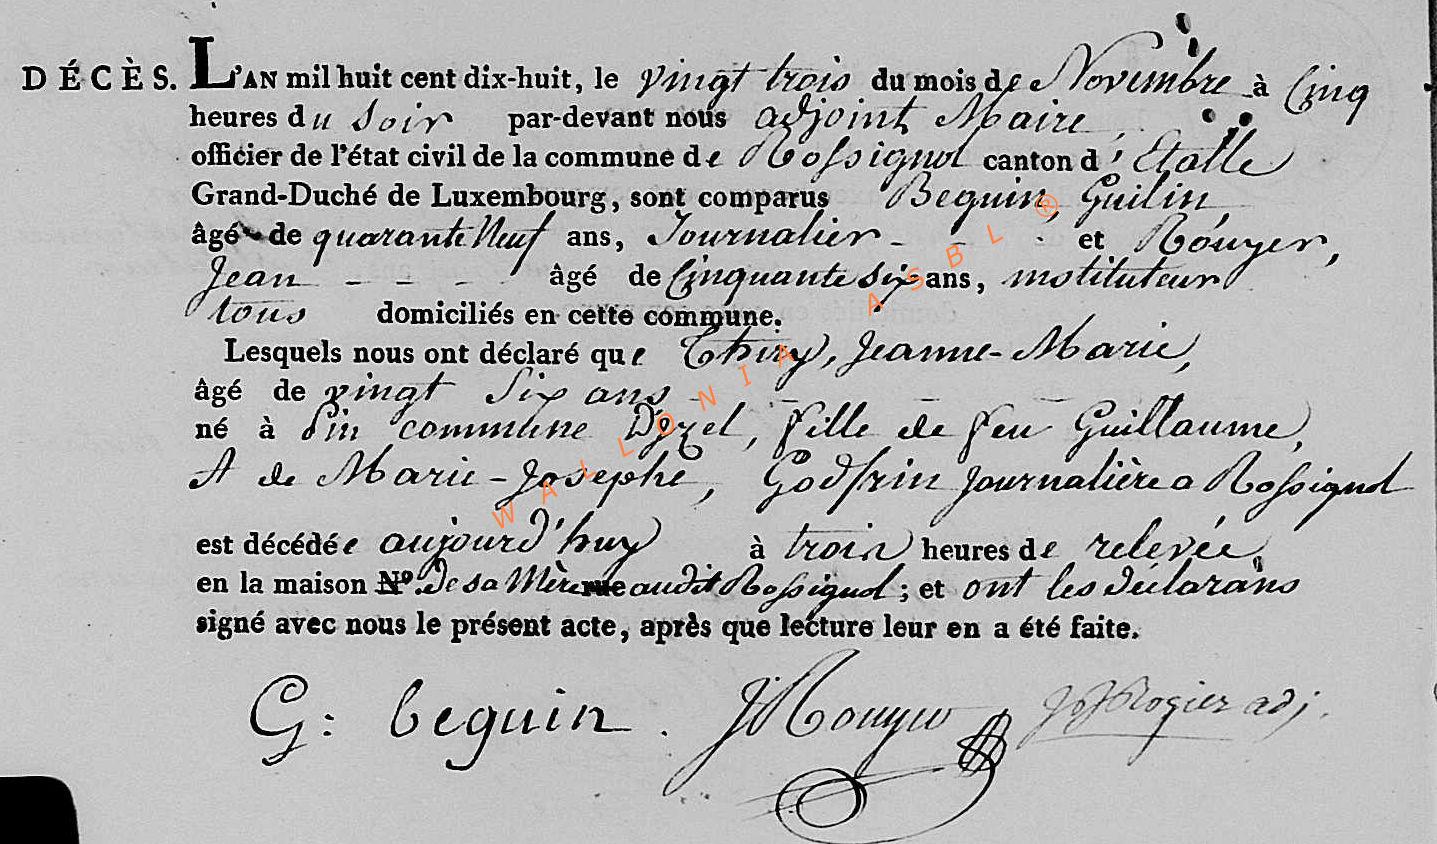 DÉCÈS. L'AN mil huit cent dix-huit, le vingt trois du mois de Novembre à Cinq
heures du Soir par-devant nous adjoint Maire,
officier de l'état civil de la commune de Rossignol canton d'Etalle
Grand-Duché de Luxembourg, sont comparus Beguin, Guilin,
âgé de quarante Neuf ans, Journalier - - - et Rouyer,
Jean - - - âgé de Cinquante Six ans, instituteur
tous domiciliés en cette commune.
Lesquels nous ont déclaré que Thiry, Jeanne-Marie,
âgé de vingt Six ans - - -
né à Pin commune D'izel, fille de feu Guillaume,
et de Marie-Josephe, Godfrin Journalière a Rossignol
est décédée aujourd'huy à trois heures de relevée,
en la maison No. De sa Mère rue audit Rossignol; et ont les déclarans
signé avec nous le présent acte, après que lecture leur en a été faite.
G: beguin. J Rouyer Rogier adj.
WALLONIA ASBL ®